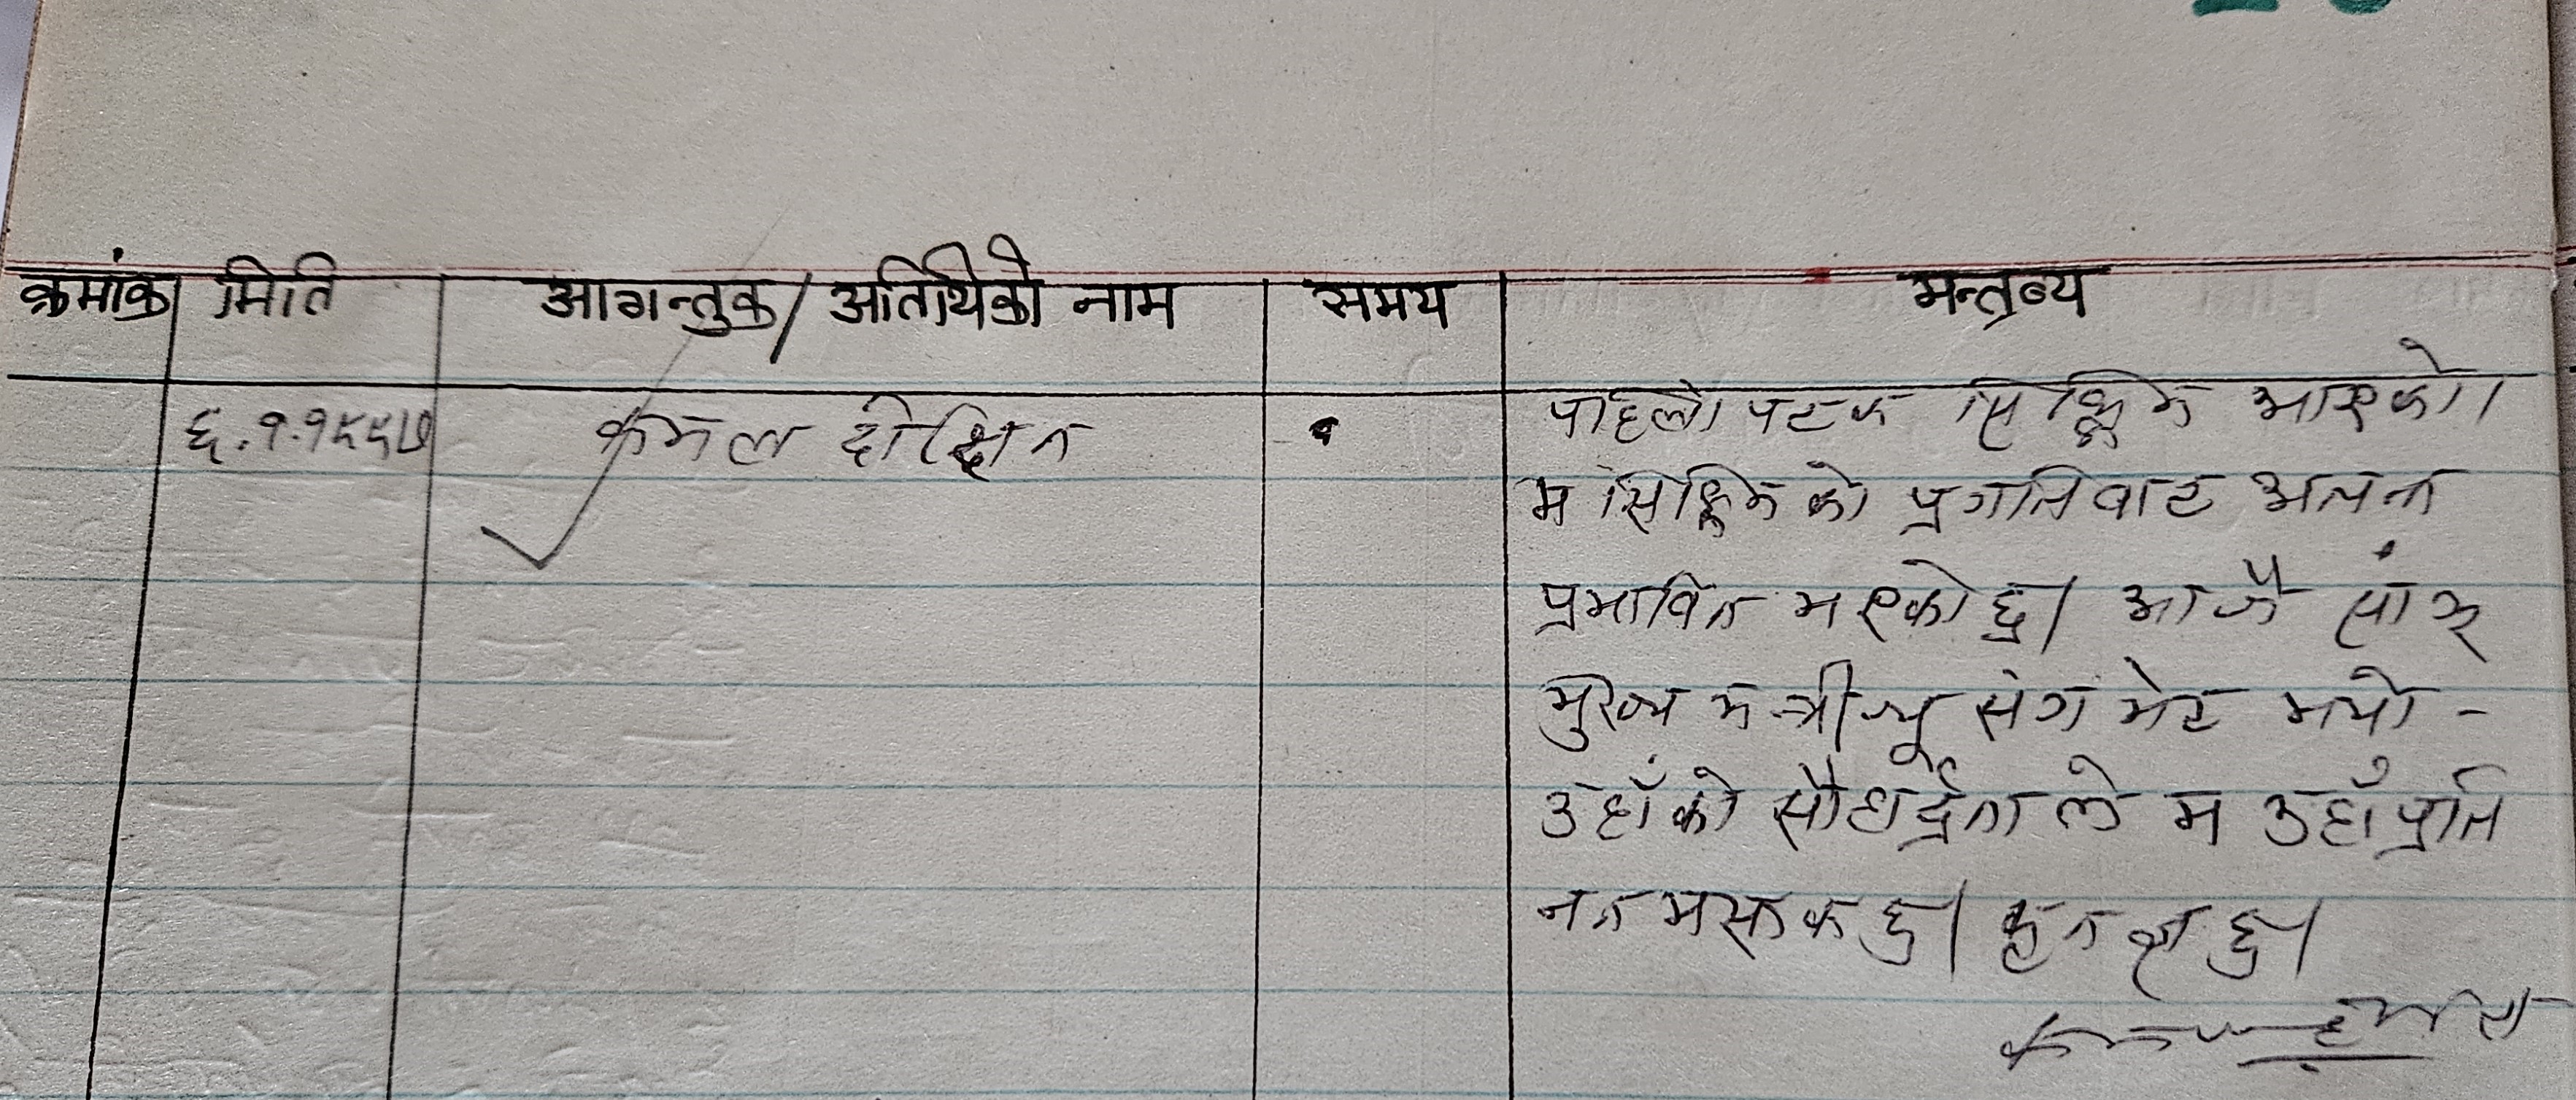 क्रमांक मिति आगन्तुक/अतिथिको नाम समय मन्तव्य
६.१.१९९७ कमल दीक्षित पहिलो पटक सिक्किम आएको।
म सिक्किमको प्रगतिबाट अत्यन्त
प्रभावित भएको छु। आजै सांझ
मुख्य मन्त्रीज्यू संग भेट भयो -
उहाँको सौहार्द्रताले म उहाँप्रति
नतमस्तक छु। कृतज्ञ छु।